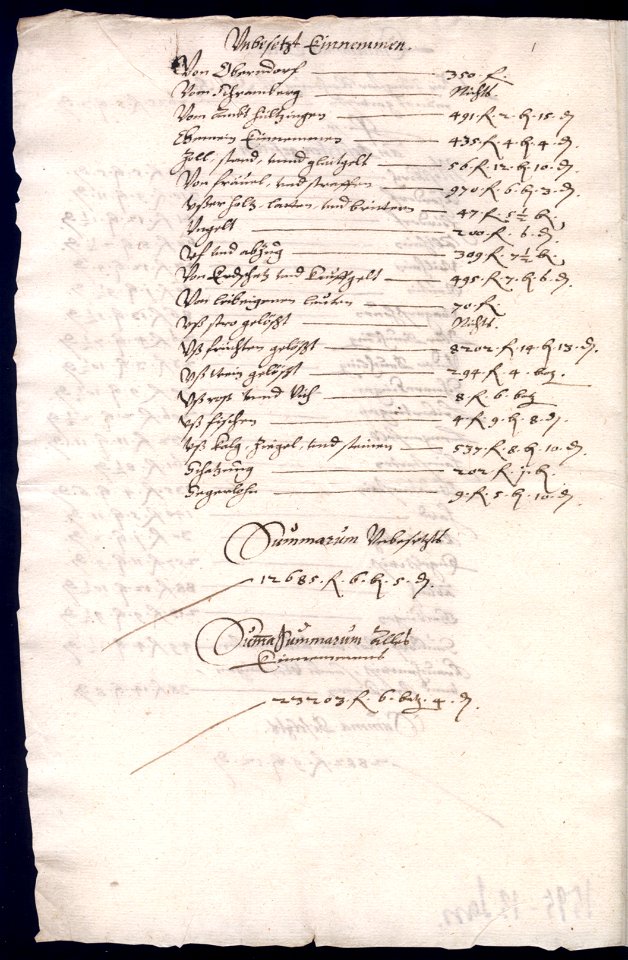 Unbesetzt Einnemmen.
Von Oberndorf 350. fl.
Vom Schramberg Nichts.
Vom Ambt Hültzingen 491. fl. 2. h. 15. d.
Gemein Einnemmen 435. fl. 4. h. 4. d.
Zoll, stand, unnd gleitgelt 56. fl. 12. h. 10. d.
Von fräuel, und straffen 970. fl. 6. h. 3. d.
Usser holtz, latten, und brittern 47 fl. 5½ bz.
Ungelt 200. fl. 6. d.
Uf und abzug 309. fl. 7½ bz.
Von Erdschatz und Kauffgelt 495. fl. 7. h. 6. d.
Von leibeigenen leutten 70. fl.
Uss stro gelösst Nichts.
Uss früchten gelösst 8202. fl. 14. h. 13. d.
Uss wein gelösst 294. fl. 4. batz.
Uss ross unnd Vich 8. fl. 6. batz
Uss fischen 4. fl. 9. h. 8. d.
Uss kalg, Ziegel, und steinen 537. fl. 8. h. 10. d.
Schatzung 202. fl. 1. h.
Segerlohn 9. fl. 5. h. 10. d.
Summarum Unbesetzts
12685. fl. 6. h. 5. d.
Summa Summarum Alles
Einnemmens
23203. fl. 6. batz. 4. d.